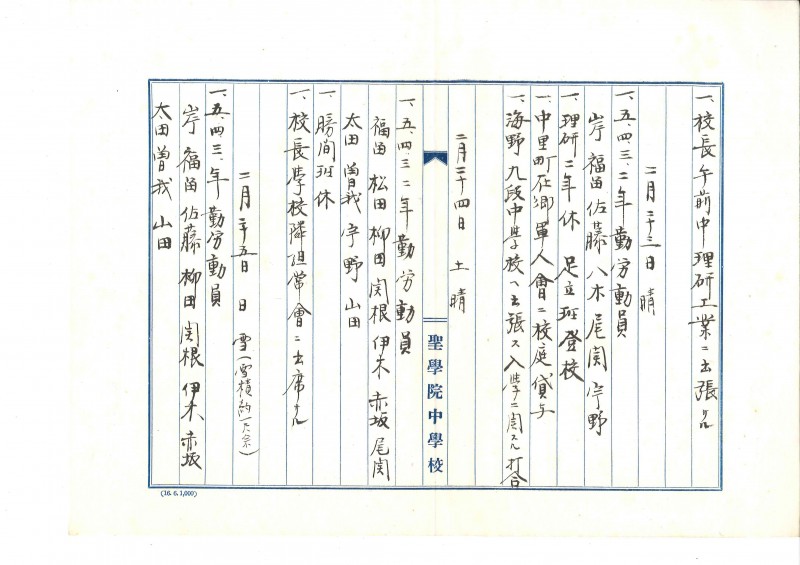 一、校長午前中理研工業ニ出張サル
二月二十三日 晴
一、五、四、三、二年勤労動員
岸 福田 佐藤 八木 尾関 宇野
一、理研二年休 足立班登校
一、中里町在郷軍人會ニ校庭貸与
一、海野 九段中學校ヘ出張ス入學ニ関スル打合
二月二十四日 土 晴
聖學院中學校
一、五、四、三、二年勤労動員
福田 松田 柳田 関根 伊木 赤坂 尾関
太田 曽我 宇野 山田
一、勝間班休
一、校長學校隣組常會ニ出席サル
二月二十五日 日 雪(雪積約一尺余)
一、五、四、三、年勤労動員
岸 福田 佐藤 柳田 関根 伊木 赤坂
太田 曽我 山田
(16. 6. 1,000)